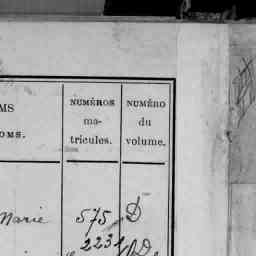 MS
OMS.
NUMÉROS
ma-
tricules.
NUMÉRO
du
volume.
Marie 575 D
2231